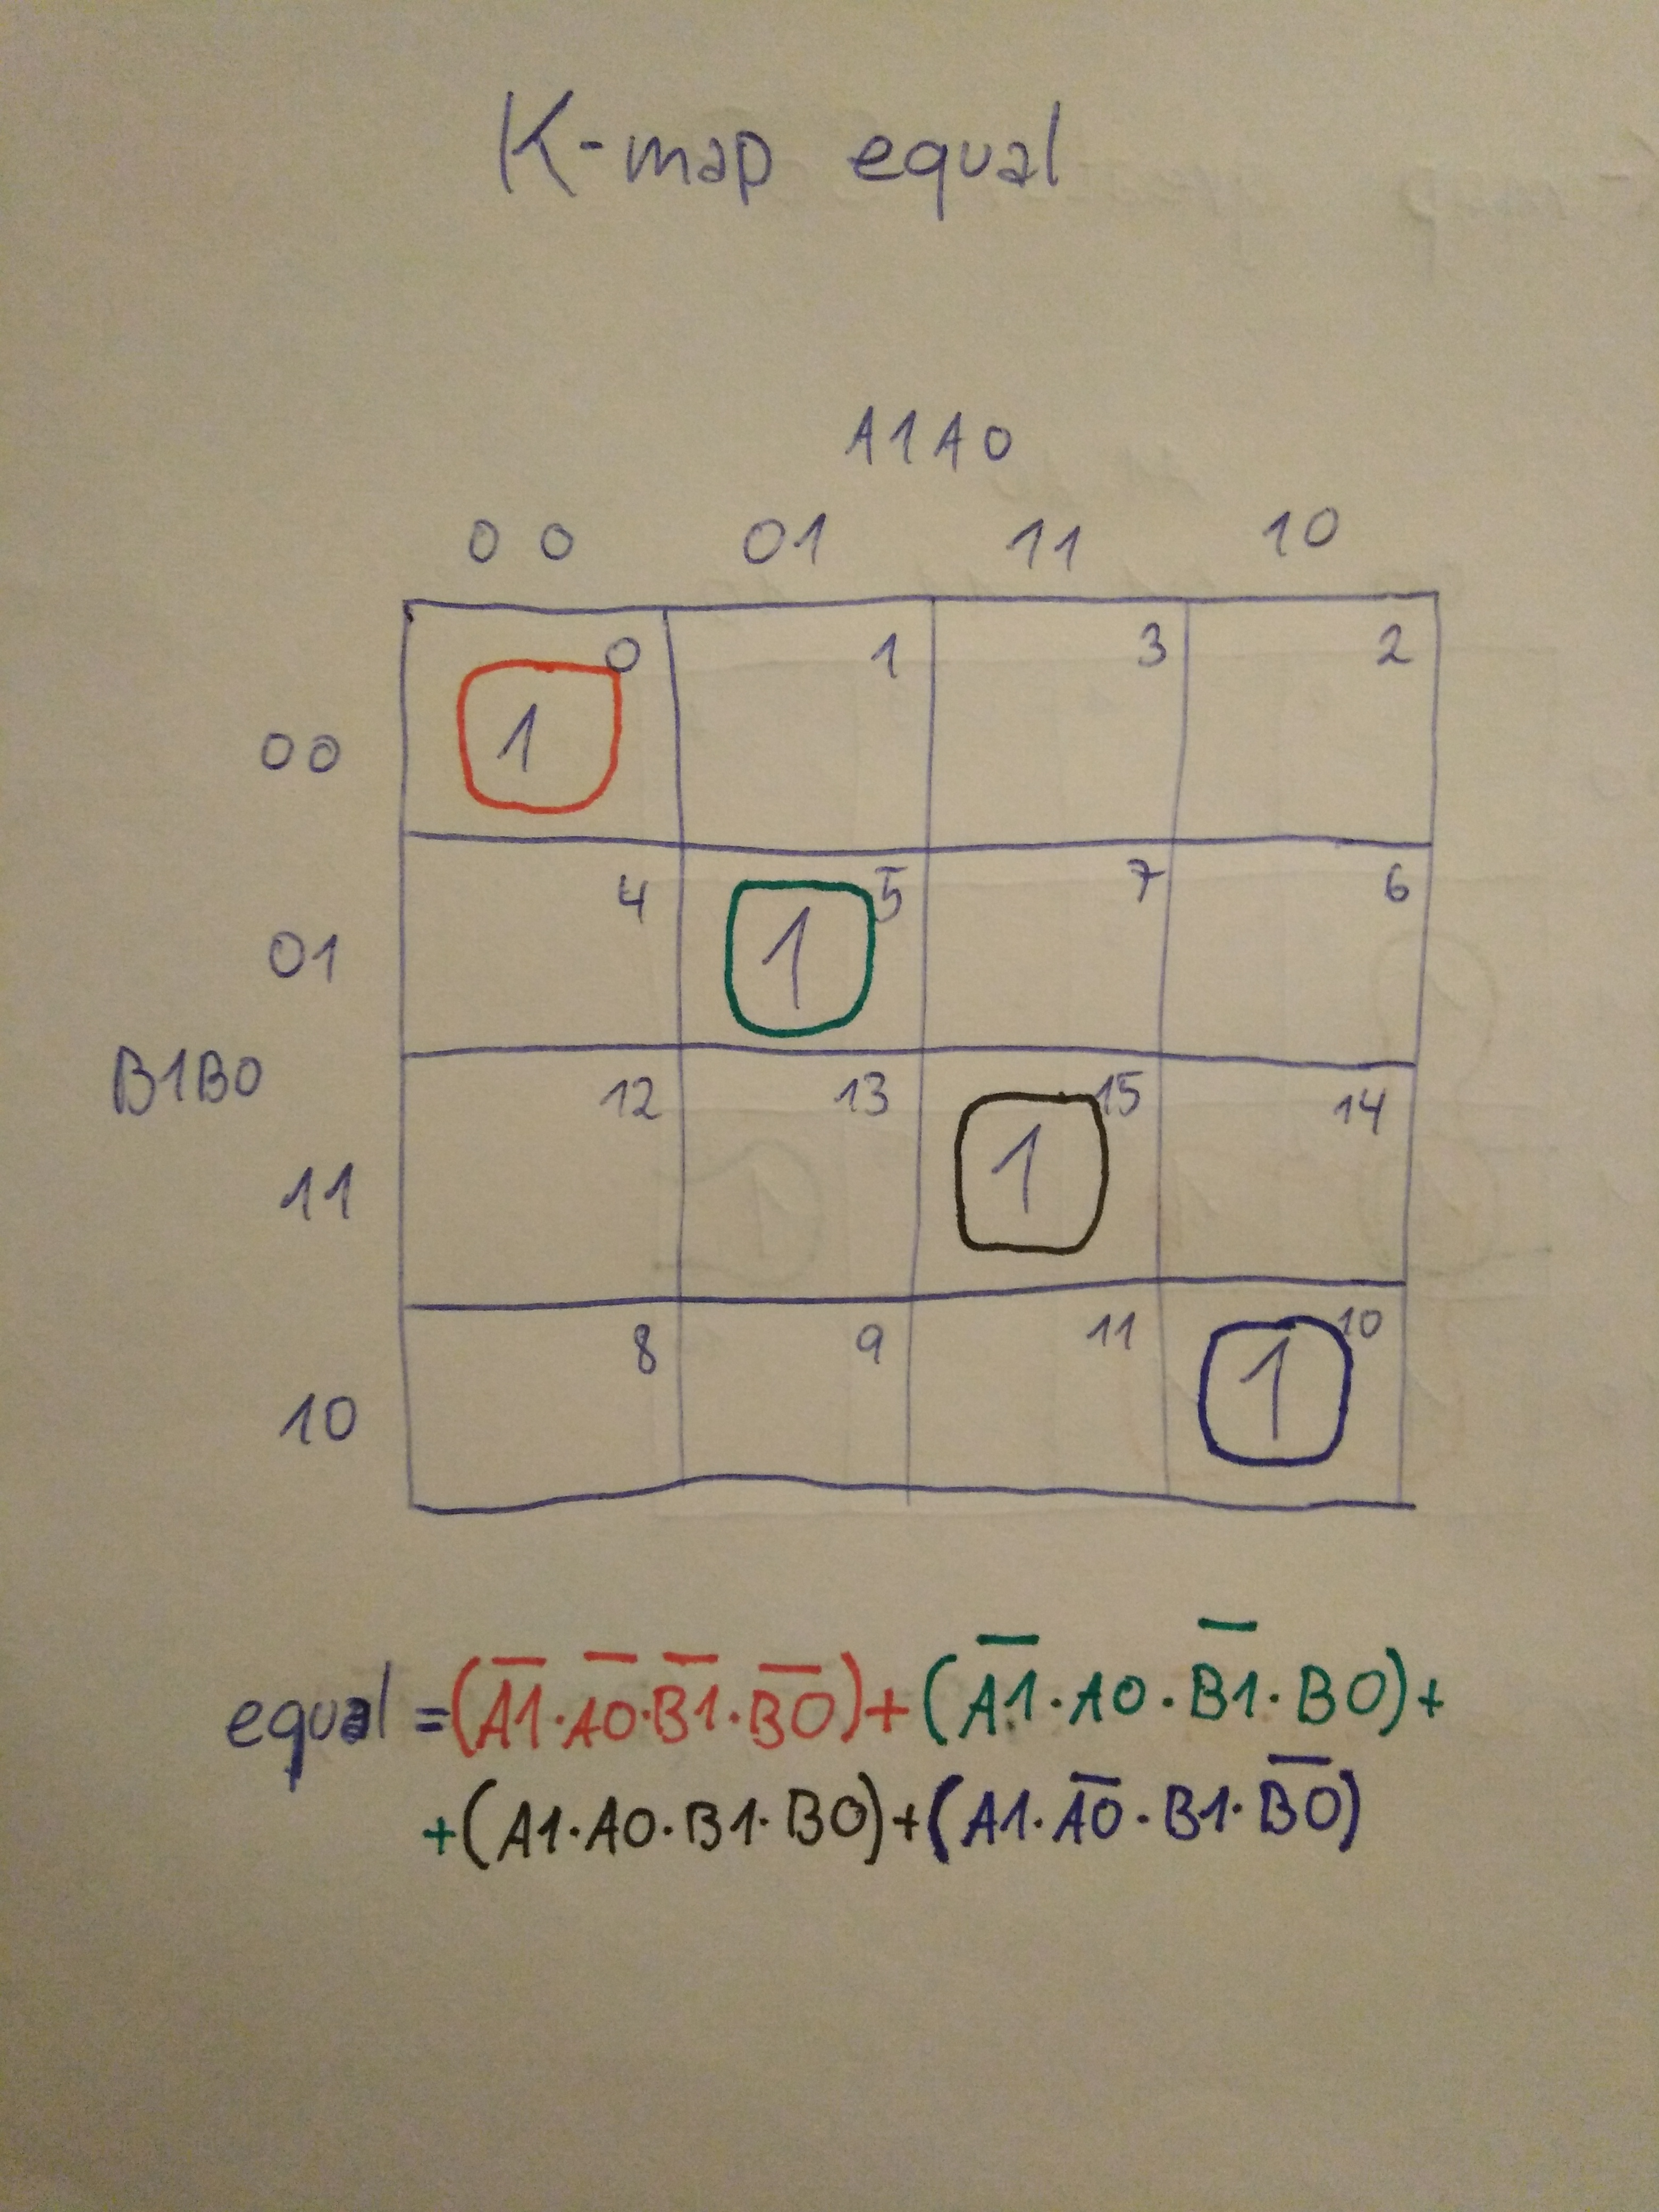 K-map equal
A1A0
00 01 11 10
0 1 3 2
00 1
4 5 7 6
01 1
B1B0
12 13 15 14
11 1
8 9 11 10
10 1
equal = (A̅1̅·A̅0̅·B̅1̅·B̅0̅)+(A̅1̅·A0·B̅1̅·B0)+
+(A1·A0·B1·B0)+(A1·A̅0̅·B1·B̅0̅)